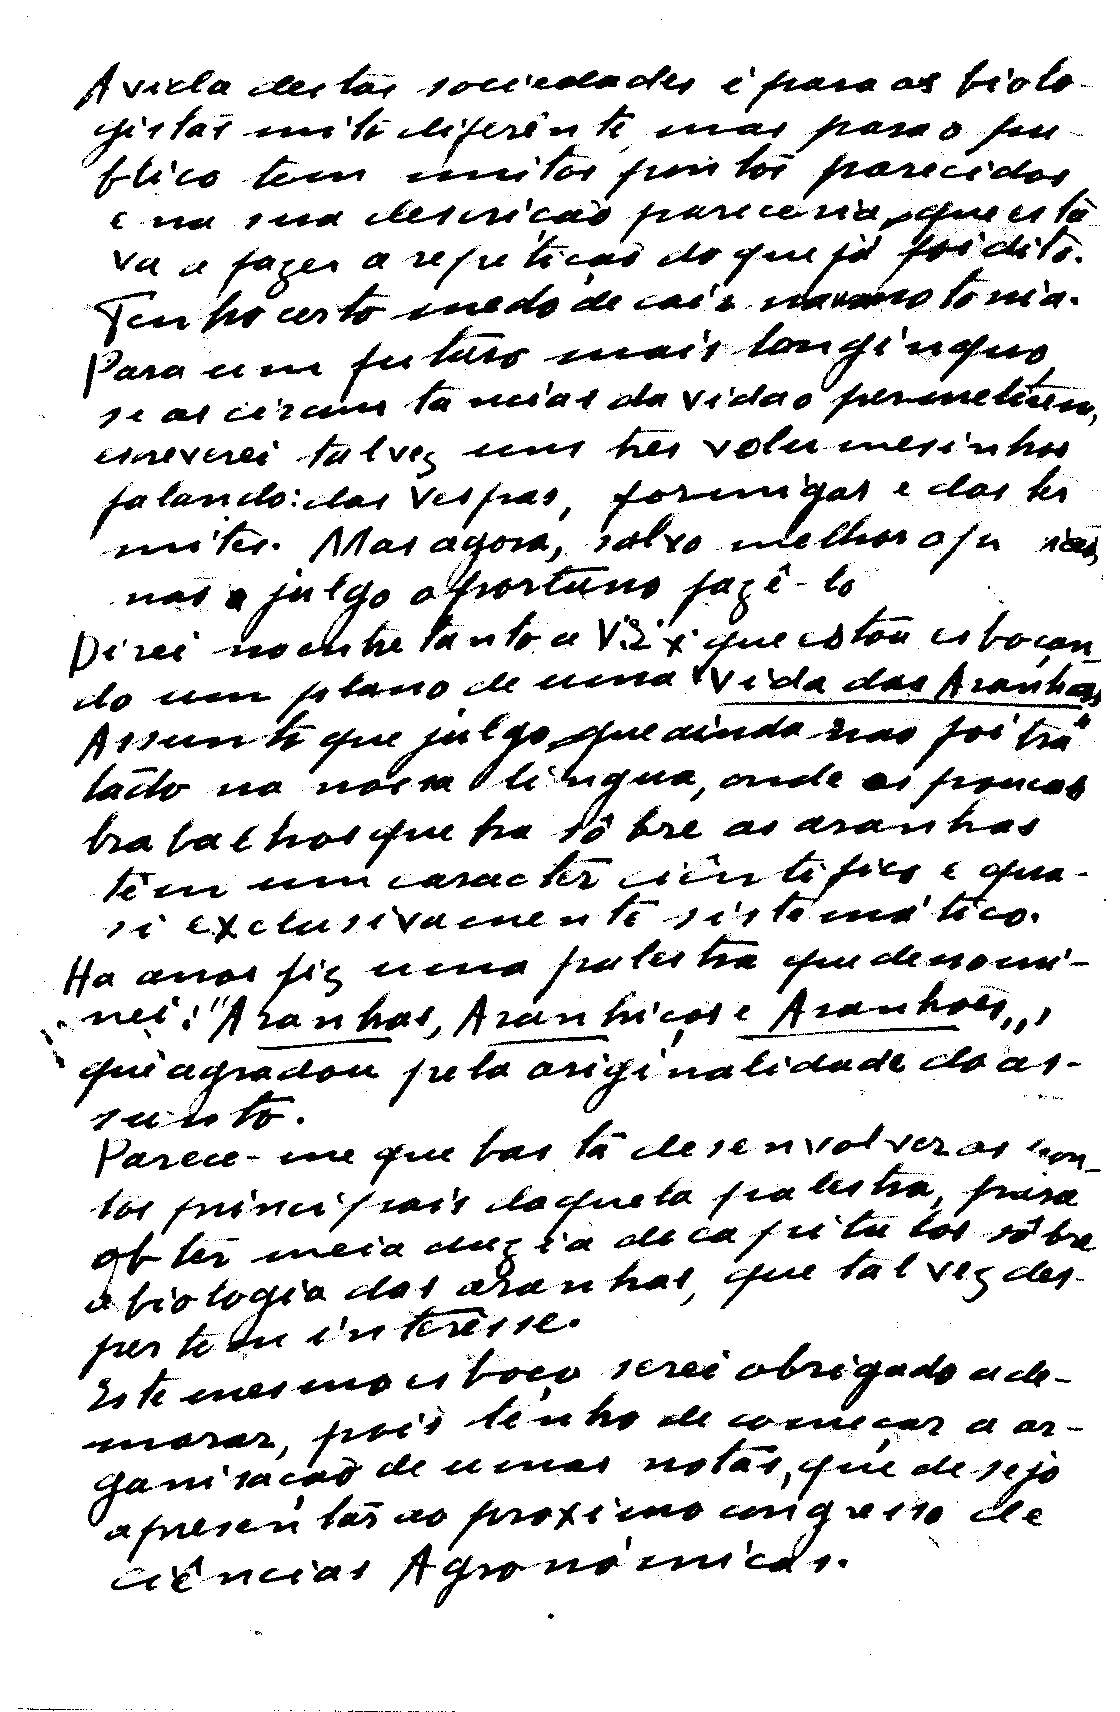 A vida destas sociedades é para os biolo-
gistas muito diferente, mas para o pu-
blico tem muitos pontos parecidos
e na sua descrição pareceria, que está
va a fazer a repetição do que já foi dito.
Tenho certo medo de cair na monotonia.
Para um futuro mais longinquo,
se as circunstancias da vida o permetirem,
escreverei talvez uns tres volumesinhos
falando: das vespas, formigas e das ter
mites. Mas agora, salvo melhor opinião,
não o julgo oportuno fazê-lo
Direi no entretanto a V. Ex. que estou esboçan-
do um plano de uma "Vida das Aranhas"
Assunto que julgo, que ainda não foi tra
tado na nossa lingua, onde os poucos
trabalhos que ha sôbre as aranhas
têm um caracter ciêntifico e qua-
si exclusivamente sistemático.
Ha anos fiz uma palestra que denomi-
nei: "Aranhas, Aranhiços e Aranhões,,,
que agradou pela originalidade do as-
sunto.
Parece-me que basta desenvolver os pon-
tos principais daquela palestra, para
obter meia duzia de capitulos sôbre
a biologia das aranhas, que talvez des-
pertem interêsse.
Este mesmo esboço serei obrigado a de-
morar, pois tenho de começar a or-
ganisação de umas notas, que desejo
apresentar ao proximo congresso de
ciências Agronómicas.